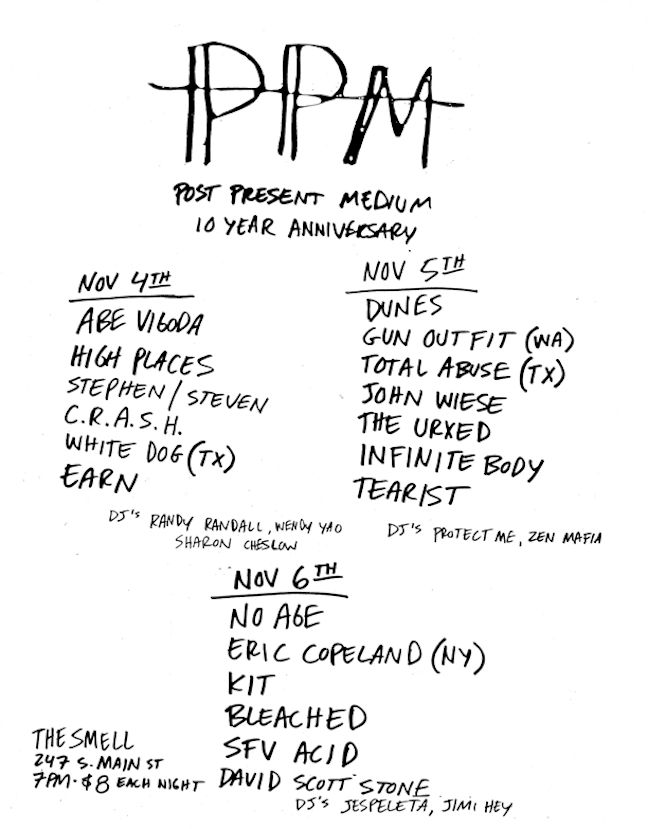 PPM
POST PRESENT MEDIUM
10 YEAR ANNIVERSARY
NOV 4TH
ABE VIGODA
HIGH PLACES
STEPHEN / STEVEN
C.R.A.S.H.
WHITE DOG (TX)
EARN
DJ'S RANDY RANDALL, WENDY YAO
SHARON CHESLOW
NOV 5TH
DUNES
GUN OUTFIT (WA)
TOTAL ABUSE (TX)
JOHN WIESE
THE URXED
INFINITE BODY
TEARIST
DJ'S PROTECT ME, ZEN MAFIA
NOV 6TH
NO AGE
ERIC COPELAND (NY)
KIT
BLEACHED
SFV ACID
DAVID SCOTT STONE
DJ'S JESPELETA, JIMI HEY
THE SMELL
247 S. MAIN ST
7PM · $8 EACH NIGHT